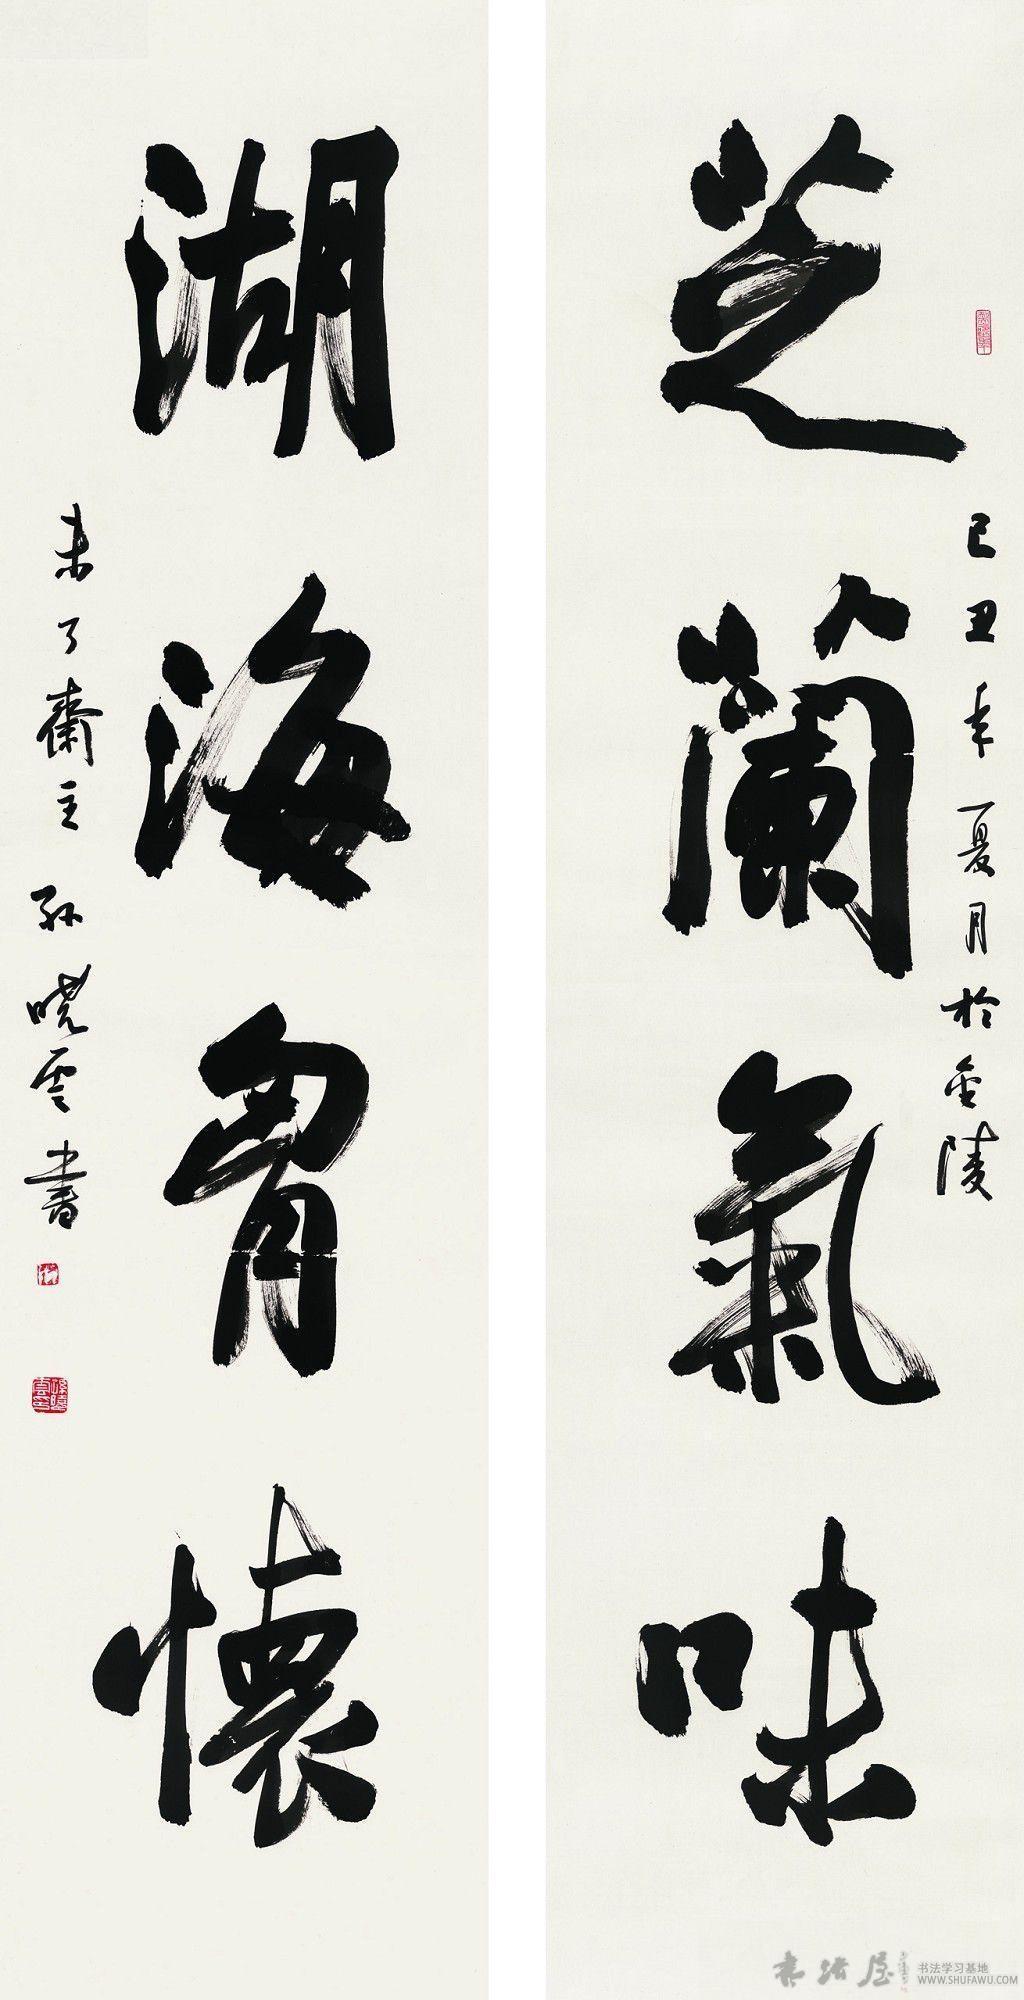 芝蘭氣味
己丑年夏月於金陵
湖海胷懷
未了齋主孫曉雲書
書法屋
书法学习基地
WWW.SHUFAWU.COM